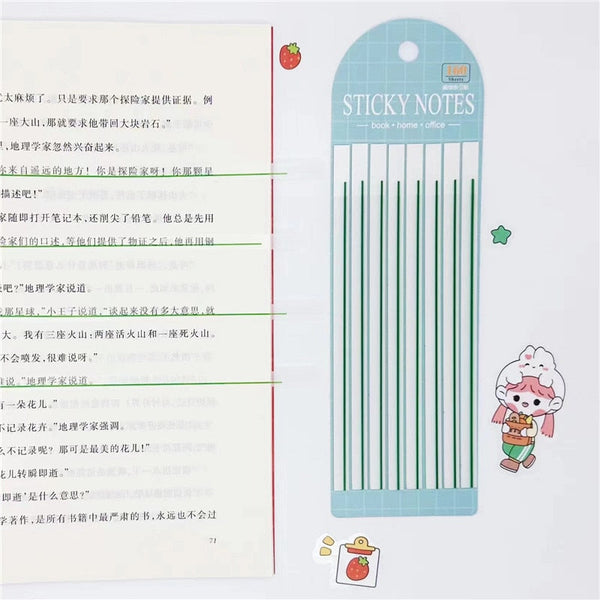 太麻烦了。只是要求那个探险家提供证据。例
一座大山，那就要求他带回大块岩石。”
里，地理学家忽然兴奋起来。
你来自遥远的地方！你是探险家呀！你那颗星
描述吧！”
家随即打开笔记本，还削尖了铅笔。他总是先用
险家们的口述，等他们提供了物证之后，他再用钢
吧？”地理学家说道。
我那星球，”小王子说道，“谈起来没有多大意思，就
大。我有三座火山：两座活火山和一座死火山。
不会喷发，很难说呀。”
难说。”地理学家说道。
有一朵花儿。”
不记录花卉。”地理学家强调。
么不记录呢？那可是最美的花儿！”
花儿转瞬即逝。”
即逝’是什么意思？”
学著作，是所有书籍中最严肃的书，永远也不会过
71
Sheets
STICKY NOTES
book • home • office